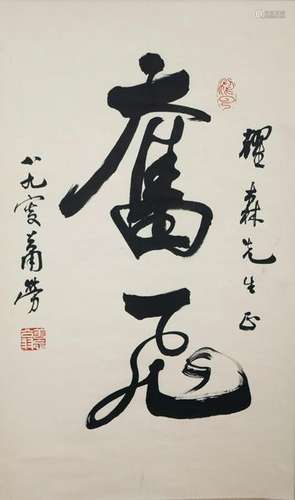 耀森先生正
奮飛
八九叟蕭勞